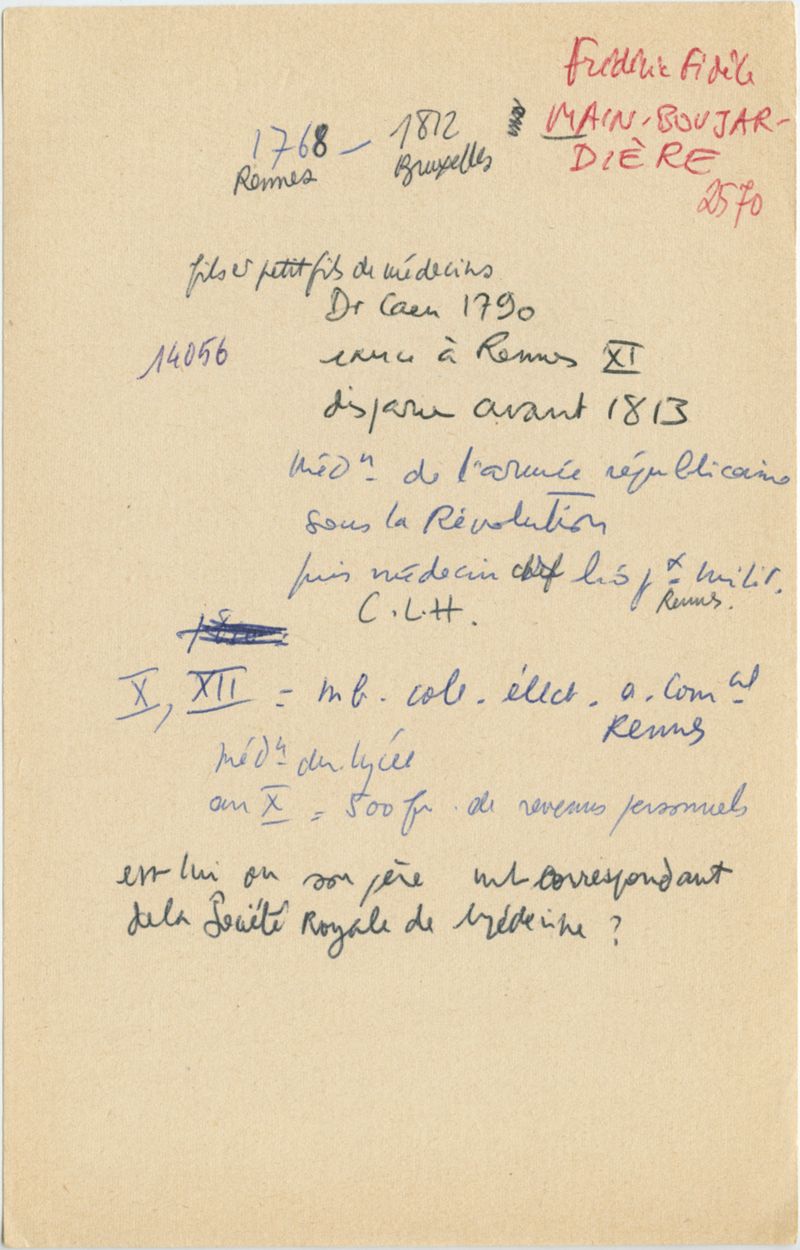 Frédéric Fidèle
MAIN-BOUJAR-
DIÈRE
2570
1768 — 1812
Rennes Bruxelles
fils et petit fils de médecins
Dr Caen 1790
14056
exerce à Rennes XI
disparu avant 1813
médn de l'armée républicaine
sous la Révolution
puis médecin chef hôpx milit.
Rennes.
C.L.H.
X, XII = mb. col. élect. a. Comal
Rennes
médn du lycée
an X = 500 fr. de revenus personnels
est-lui ou son père mb correspondant
de la Société Royale de Médecine ?